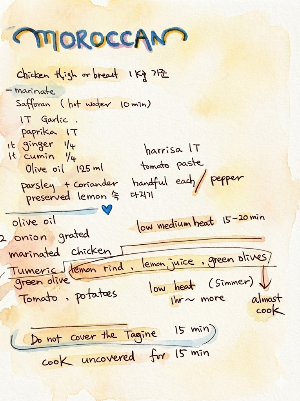 MOROCCAN
Chicken thigh or breast 1 Kg 기준
- marinate
Safforan (hot water 10 min)
1T Garlic.
paprika 1T
1t ginger 1/4
1t cumin 1/4
harrisa 1T
Olive oil 125ml
tomato paste
parsley + coriander handful each / pepper
preserved lemon 속 다지기
olive oil
low medium heat 15-20min
2 onion grated
marinated chicken
Tumeric lemon rind, lemon juice, green olives
green olive
low heat (simmer)
Tomato, potatoes
1hr ~ more
almost
cook
Do not cover the Tagine 15 min
cook uncovered for 15 min